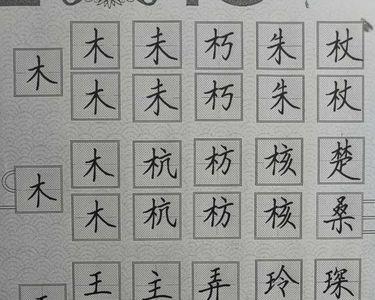 木 木 未 朽 朱 杖
木 未 朽 朱 杖
木 木 杭 枋 核 楚
木 杭 枋 核 桑
王 主 弄 玲 琛